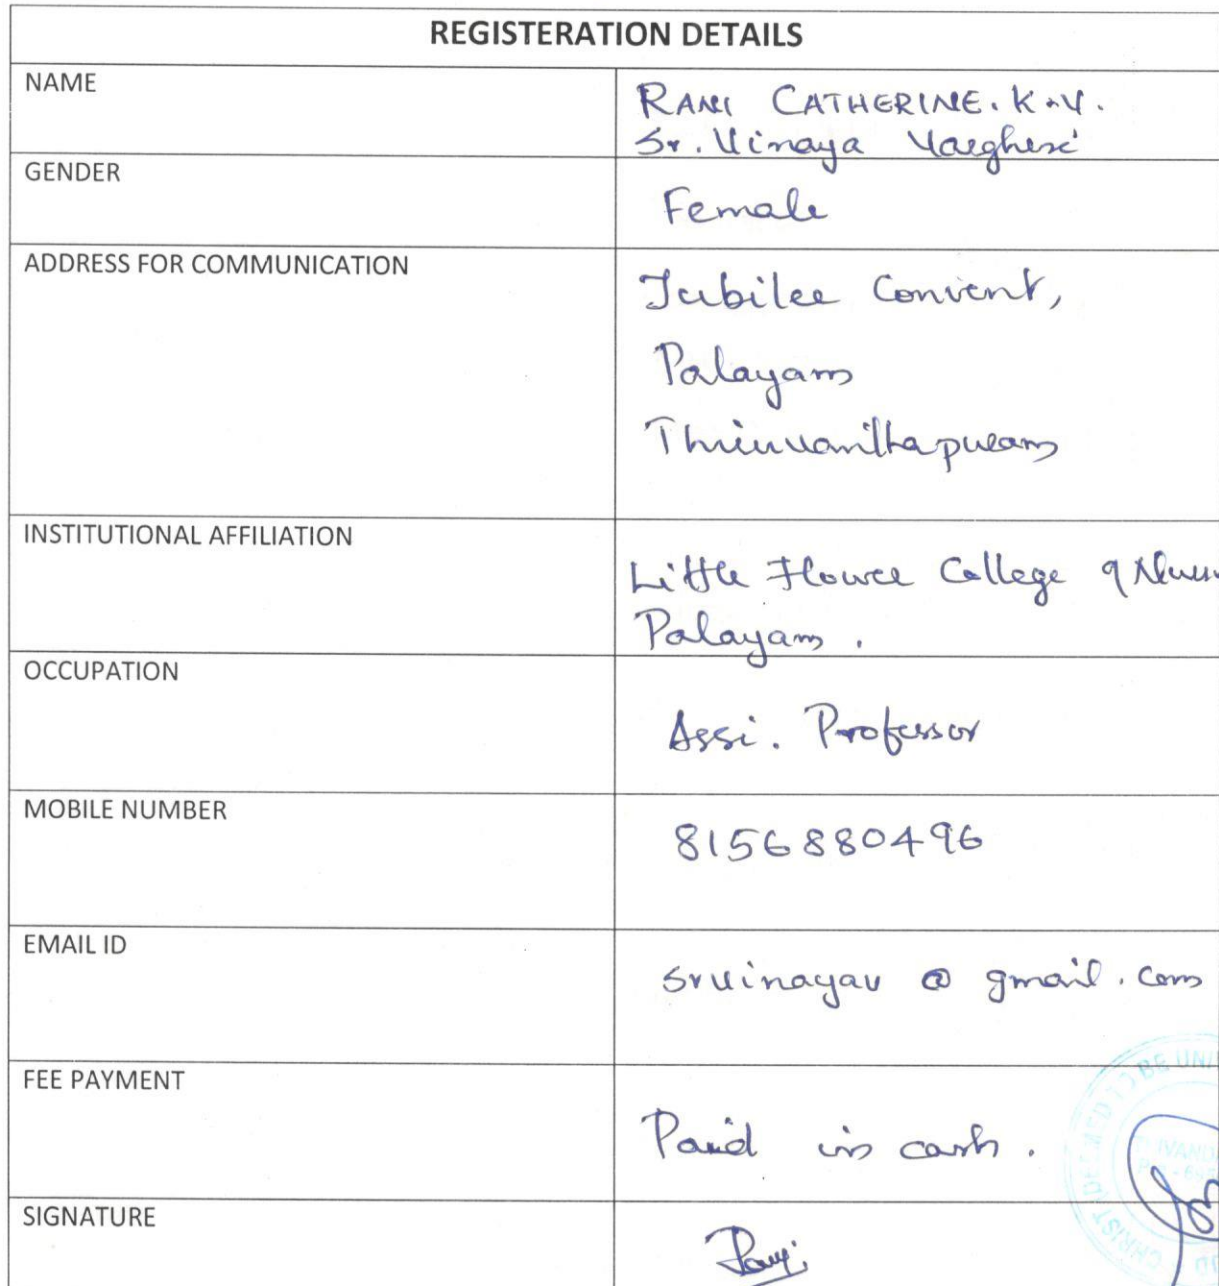 REGISTERATION DETAILS
NAME
RANI CATHERINE. K.V.
Sr. Vinaya Varghese
GENDER
Female
ADDRESS FOR COMMUNICATION
Jubilee Convent,
Palayam
Thiruvanthapuram
INSTITUTIONAL AFFILIATION
Little Flower College of
Palayam.
OCCUPATION
Assi. Professor
MOBILE NUMBER
8156880496
EMAIL ID
srvinayav @ gmail.com
FEE PAYMENT
Paid in cash.
SIGNATURE
CHRIST (DEEMED TO BE UNI